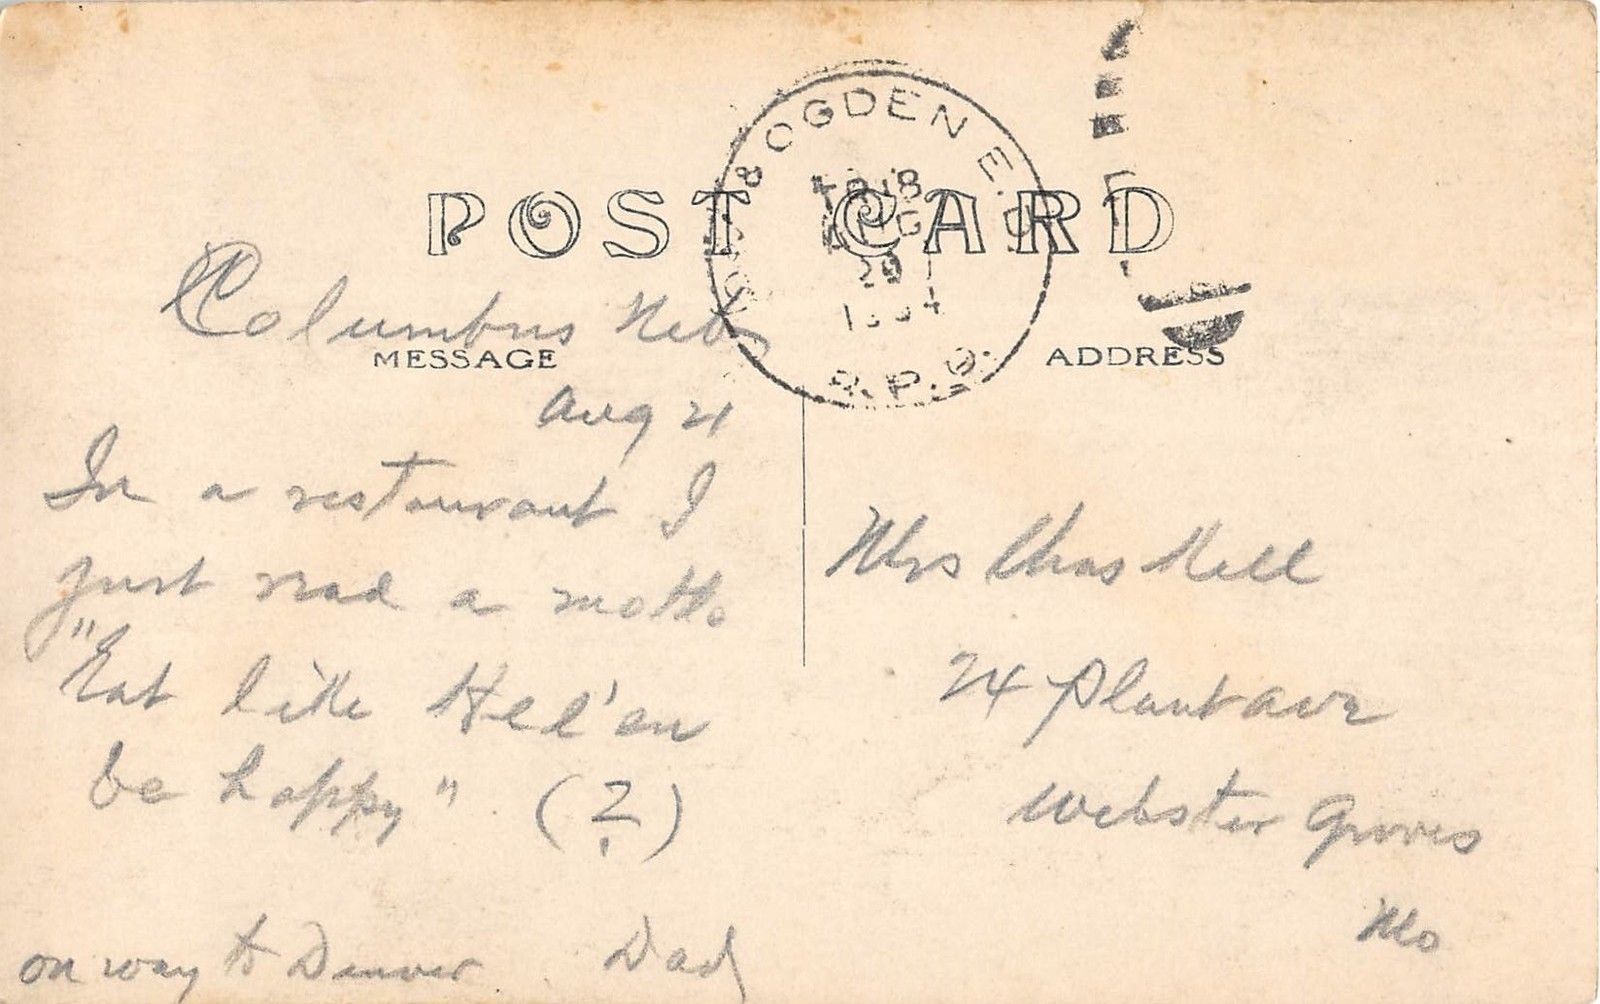 POST CARD
& OGDEN E. D.
AUG
1934
R.P.O.
Columbus Neb
MESSAGE
Aug 21
In a restaurant I
just read a motto
"Eat like Hell'an
be happy" (?)
on way to Denver Dad
ADDRESS
Mrs Chas
24 Plant ave
Webster Groves
Mo